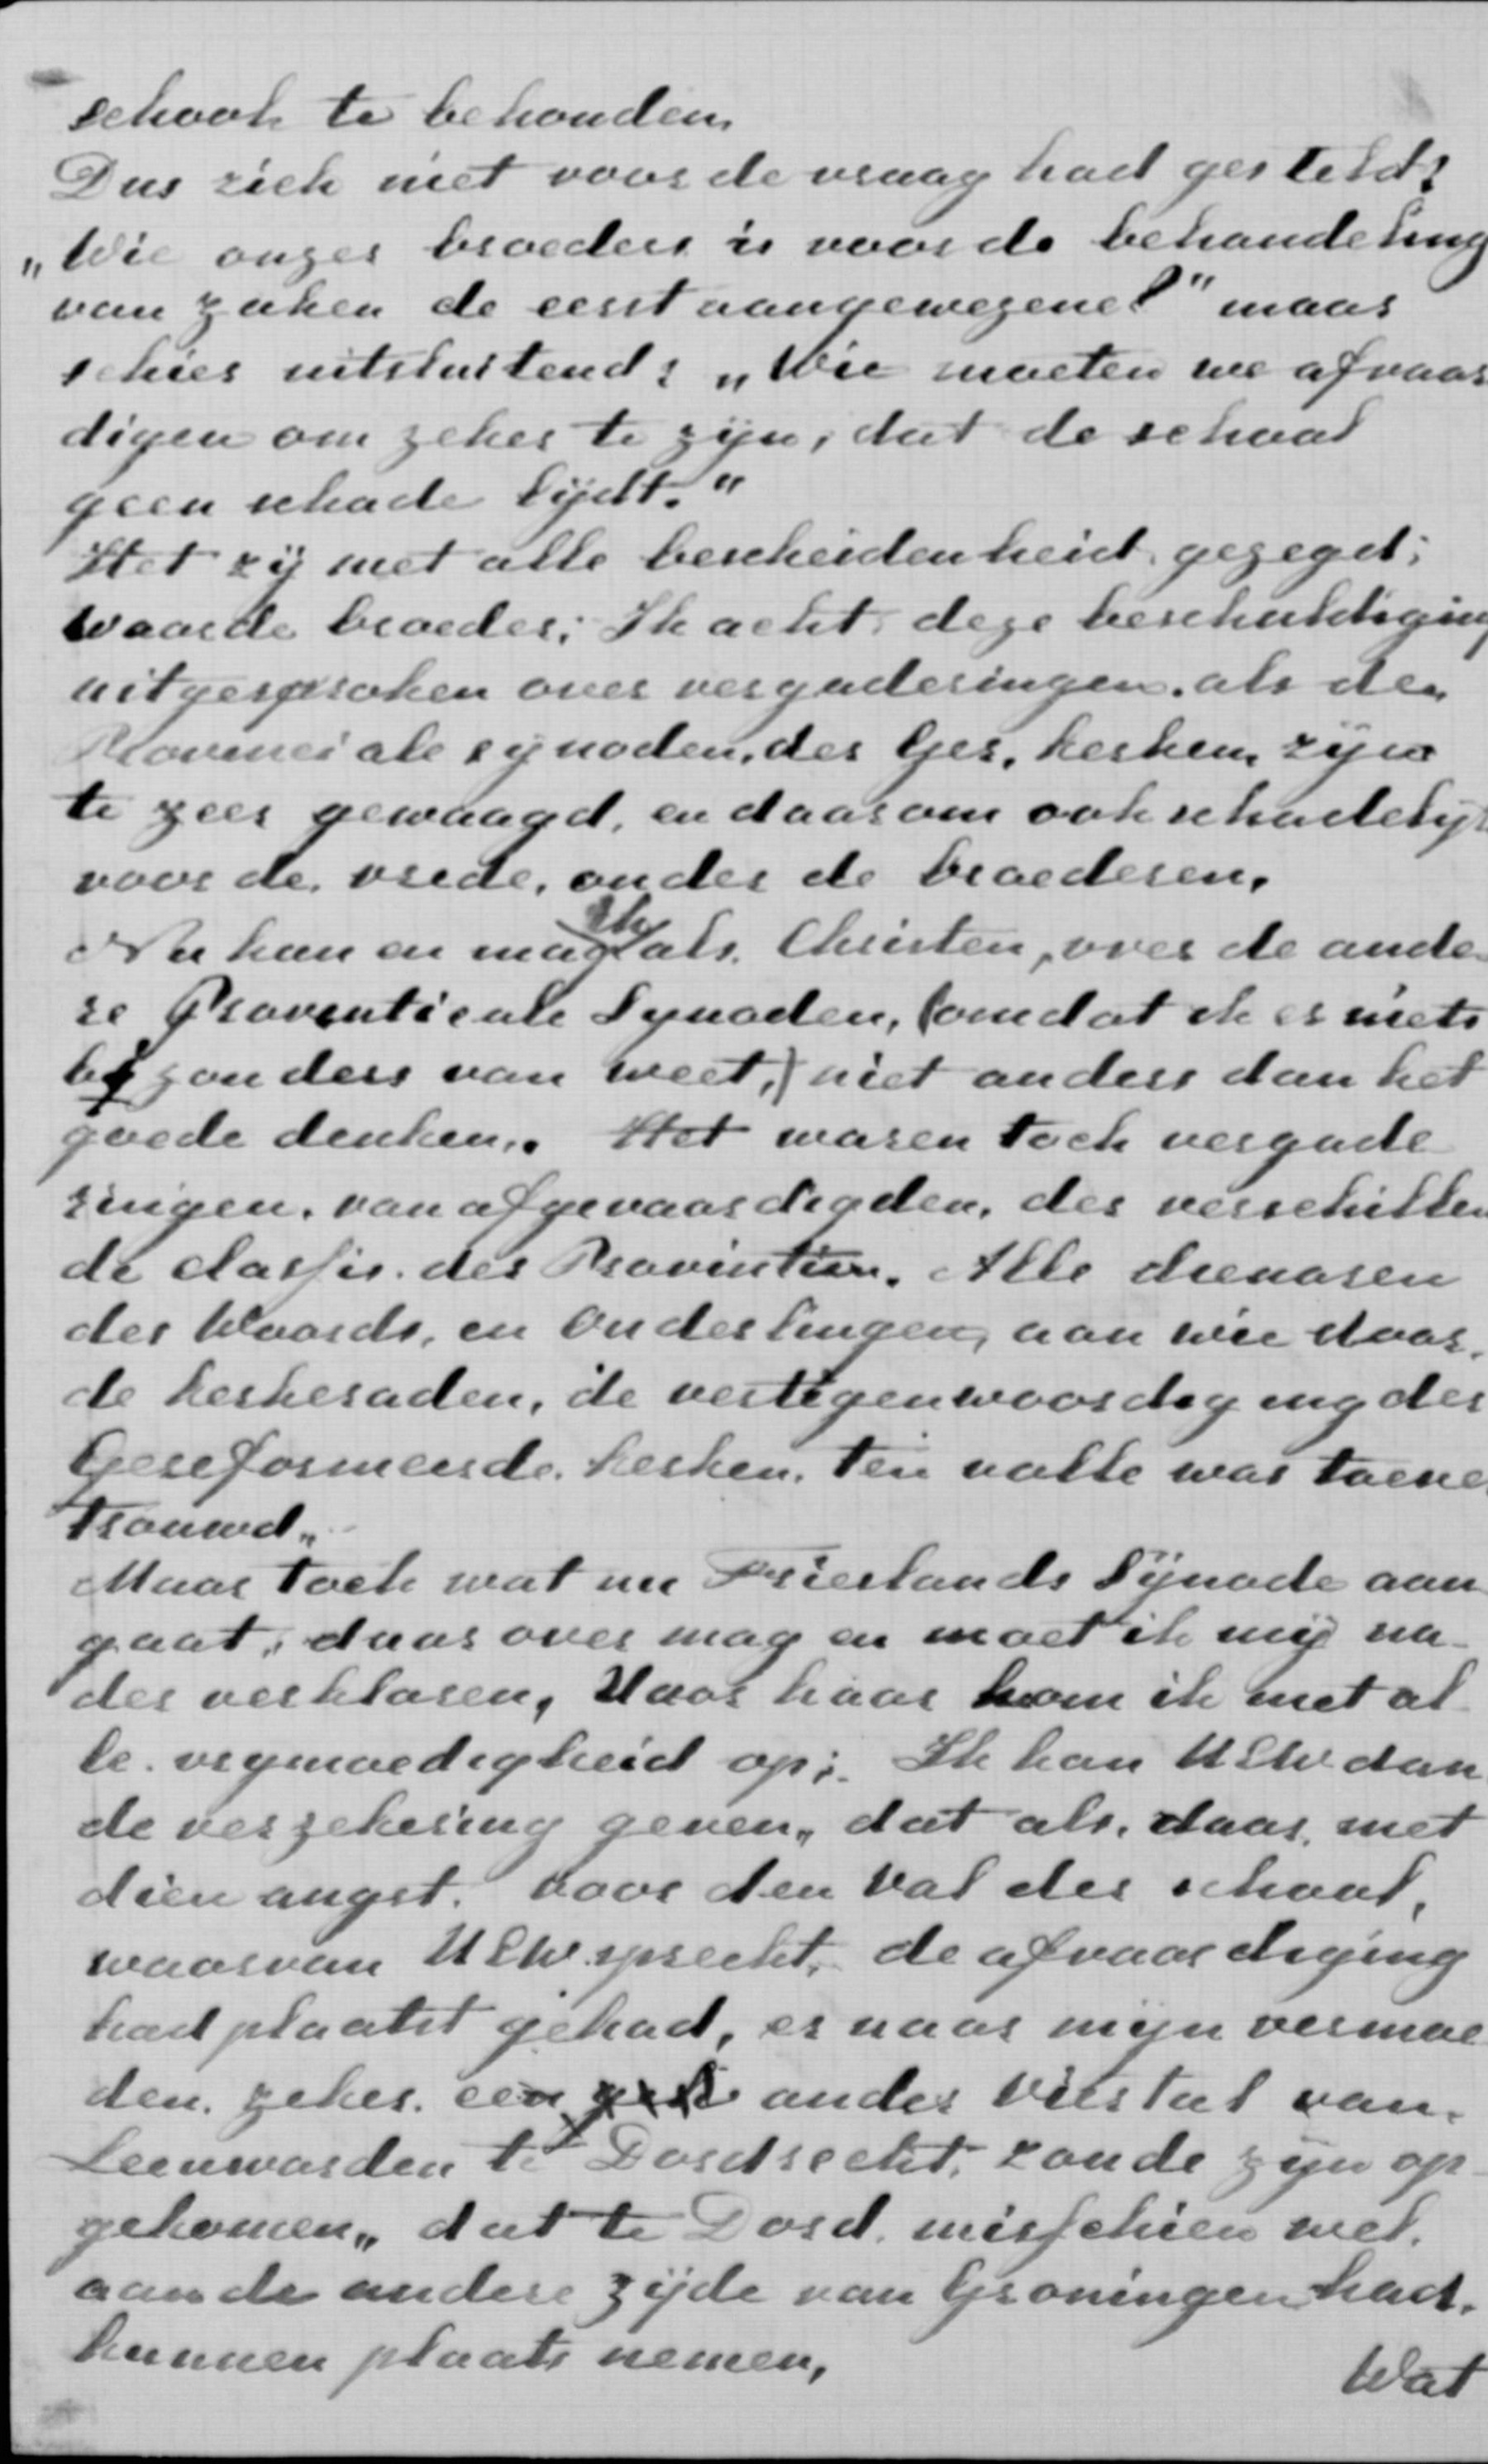 school te behouden.
Dus zich niet voor de vraag had gesteld:
„Wie onzer broeders is voor de behandeling
van zaken de eerst aangewezene?" maar
schier uitsluitend: „Wie moeten we afvaar
digen om zeker te zijn, dat de school
geen schade lijdt."
Het zij met alle bescheidenheid gezegd;
waarde broeder; Ik acht deze beschuldiging
uitgesproken over vergaderingen. als de
Provinciale synoden, der Ger. kerken, zijn
te zeer gewaagd, en daarom ook schadelijk
voor de vrede, onder de broederen,
Nu kan en mag ik als Christen, over de ande-
re Provintieale Synoden, (omdat ik er niets
byzonders van weet,) niet anders dan het
goede denken.. Het waren toch vergade
ringen. van afgevaardigden, der verschillen
de classis. der Provintien. Alle dienaren
des Woords, en Ouderlingen, aan wie door,
de kerkeraden, de vertegenwoordiging der
Gereformeerde. kerken. ten volle was toever
trouwd„
Maar toch wat nu Frieslands Synode aan
gaat, daar over mag en moet ik mij na-
der verklaren, Voor haar kom ik met al
le. vrymoedigheid op;. Ik kan UEw dan
de verzekering geven„ dat als. daar, met
dien angst. voor den val der school,
waarvan UEw. spreekt, de afvaardiging
had plaatst gehad, er naar mijn vermoe
den. zeker. een ander viertal van.
Leeuwarden te Dordrecht, zoude zijn op-
gekomen„ dat te Dord. misschien wel.
aan de andere zijde van Groningen had.
kunnen plaats nemen,
Wat